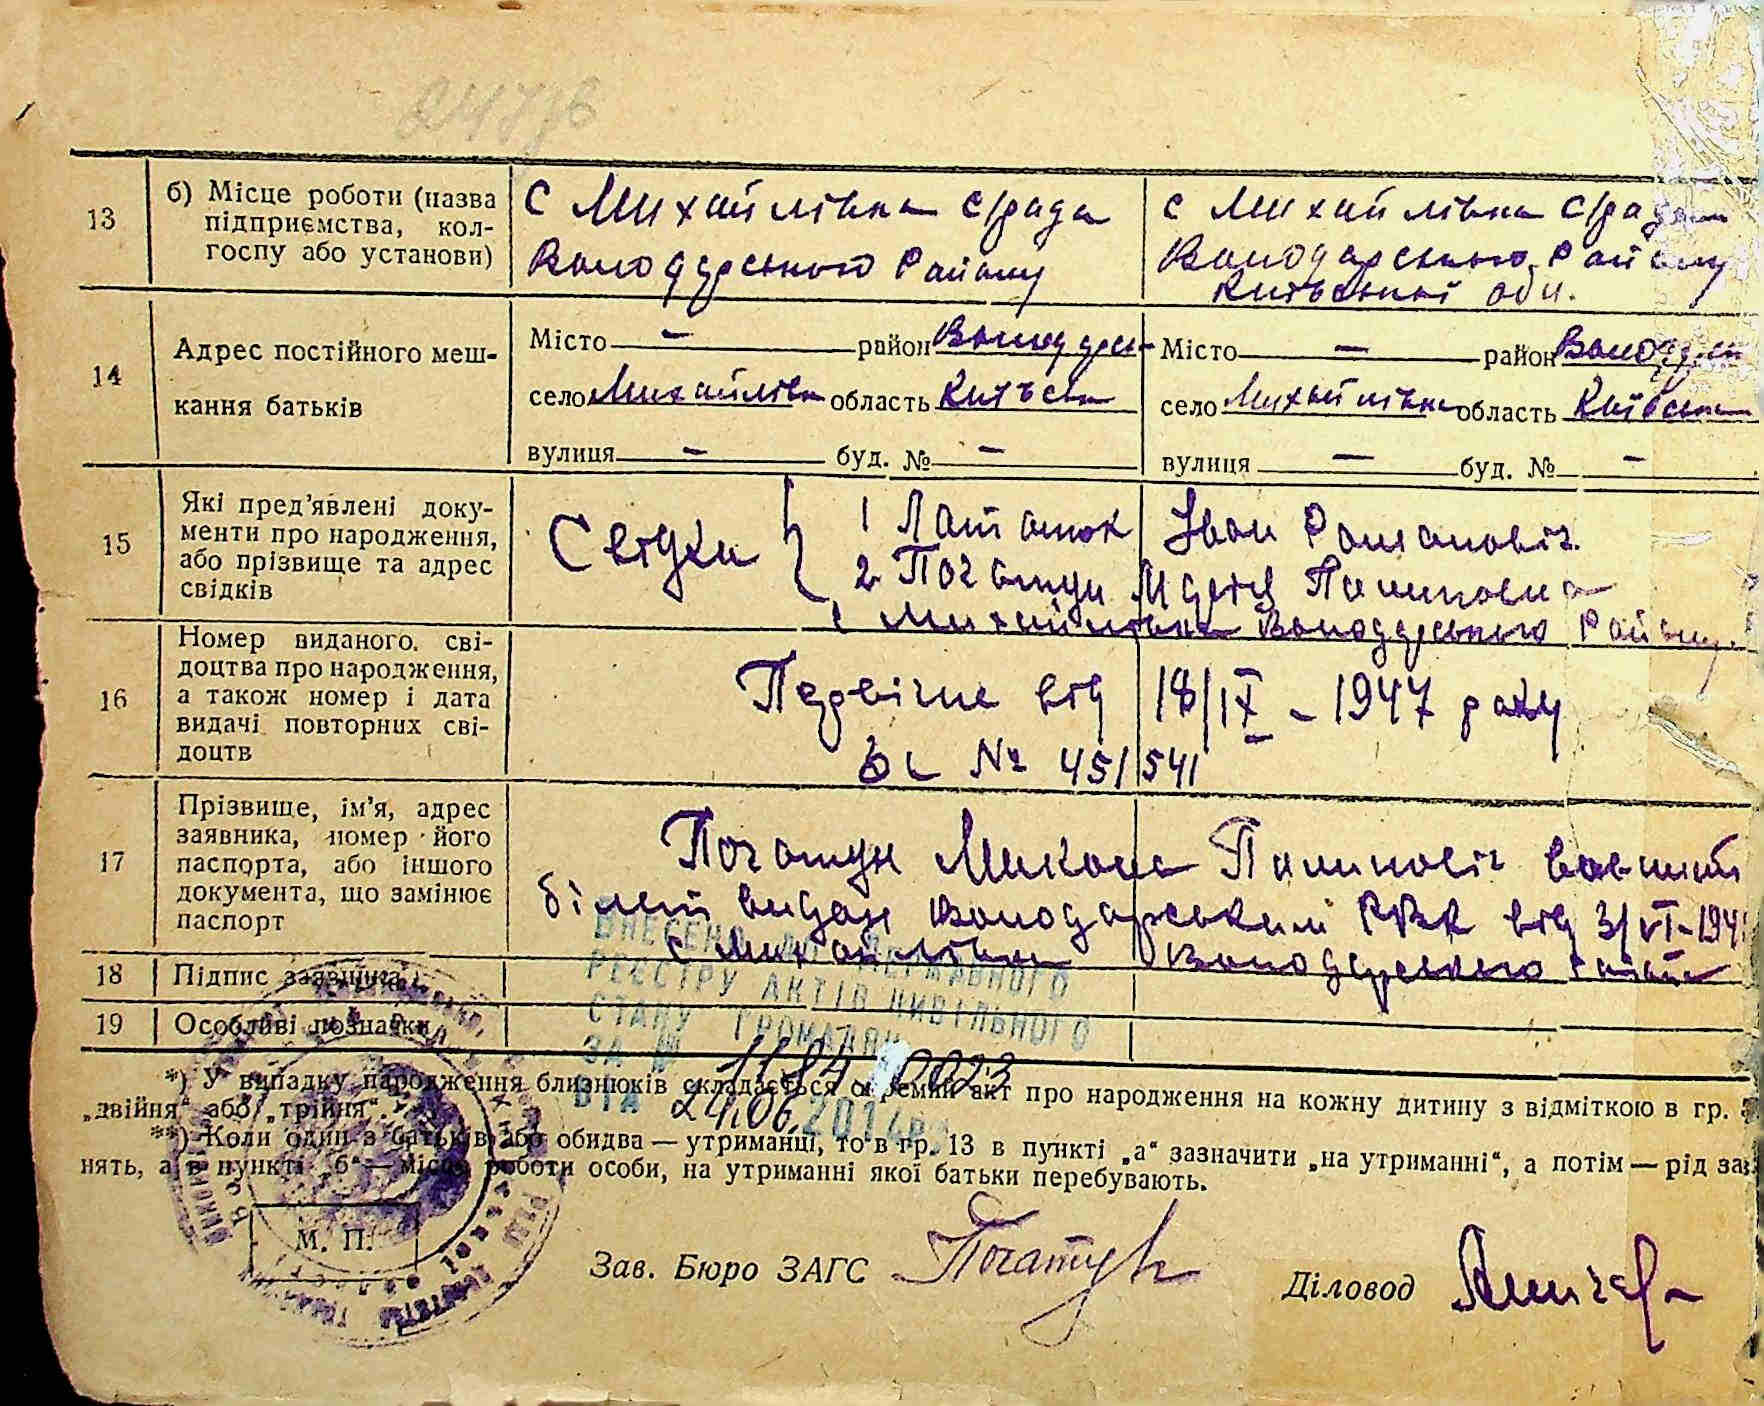 13
б) Місце роботи (назва
підприємства, кол-
госпу або установи)
с Михайлівка с/рада
Володарського Району
с Михайлівка с/рада
Володарського Району
Київської обл.
14
Адрес постійного меш-
кання батьків
Місто — район Володарсь
село Михайлівка область Київська
вулиця — буд. № —
Місто — район Володарськ
село Михайлівка область Київська
вулиця — буд. № —
15
Які пред'явлені доку-
менти про народження,
або прізвище та адрес
свідків
Свідки
1 Іван Романович
2 Початун Марія
с Михайлівка Володарського Району.
16
Номер виданого. сві-
доцтва про народження,
а також номер і дата
видачі повторних сві-
доцтв
Первічне від 18/ІХ – 1947 року
№ 451541
17
Прізвище, ім'я, адрес
заявника, номер його
паспорта, або іншого
документа, що замінює
паспорт
Початун Микола
білет видан Володарським РВК від 3/VI-194
с Михайлівка Володарського
18
Підпис заявника
19
Особливі позначки
ВНЕСЕНО ДО ДЕРЖАВНОГО
РЕЄСТРУ АКТІВ ЦИВІЛЬНОГО
СТАНУ ГРОМАДЯН
ЗА №
ВІД 24.06.2014р.
*) У випадку народження близнюків складається окремий акт про народження на кожну дитину з відміткою в гр.
„двійня“ або „трійня“.
**) Коли один з батьків або обидва — утриманці, то в гр. 13 в пункті „а“ зазначити „на утриманні“, а потім — рід за
нять, а в пункті „б“ — місце роботи особи, на утриманні якої батьки перебувають.
М. П.
Зав. Бюро ЗАГС
Діловод